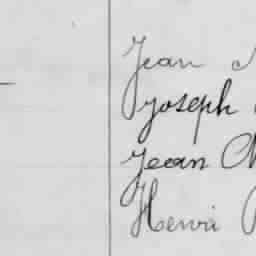 Jean
Joseph
Jean
Henri